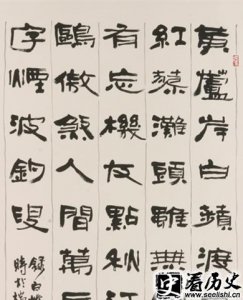 黃蘆岸白蘋渡
紅蓼灘頭雖無
有忘機友點秋江
鷗傲煞人間萬
字煙波釣叟
錄白
時於
看历史
www.seelishi.cn